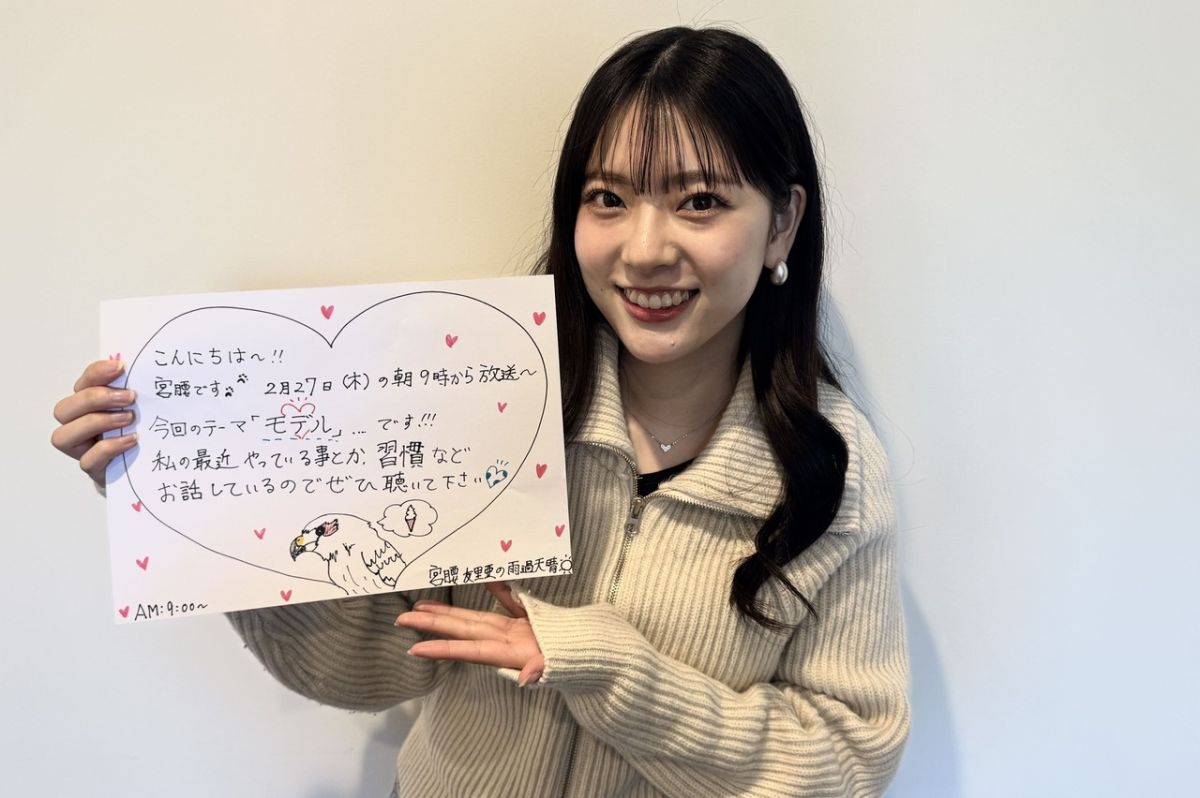 こんにちは〜!!
宮腰です 2月27日(木)の朝9時から放送〜
今回のテーマ「モデル」... です!!!
私の最近やっている事とか、習慣など
お話しているのでぜひ聴いて下さい
宮腰友里亜の雨過天晴
AM:9:00〜